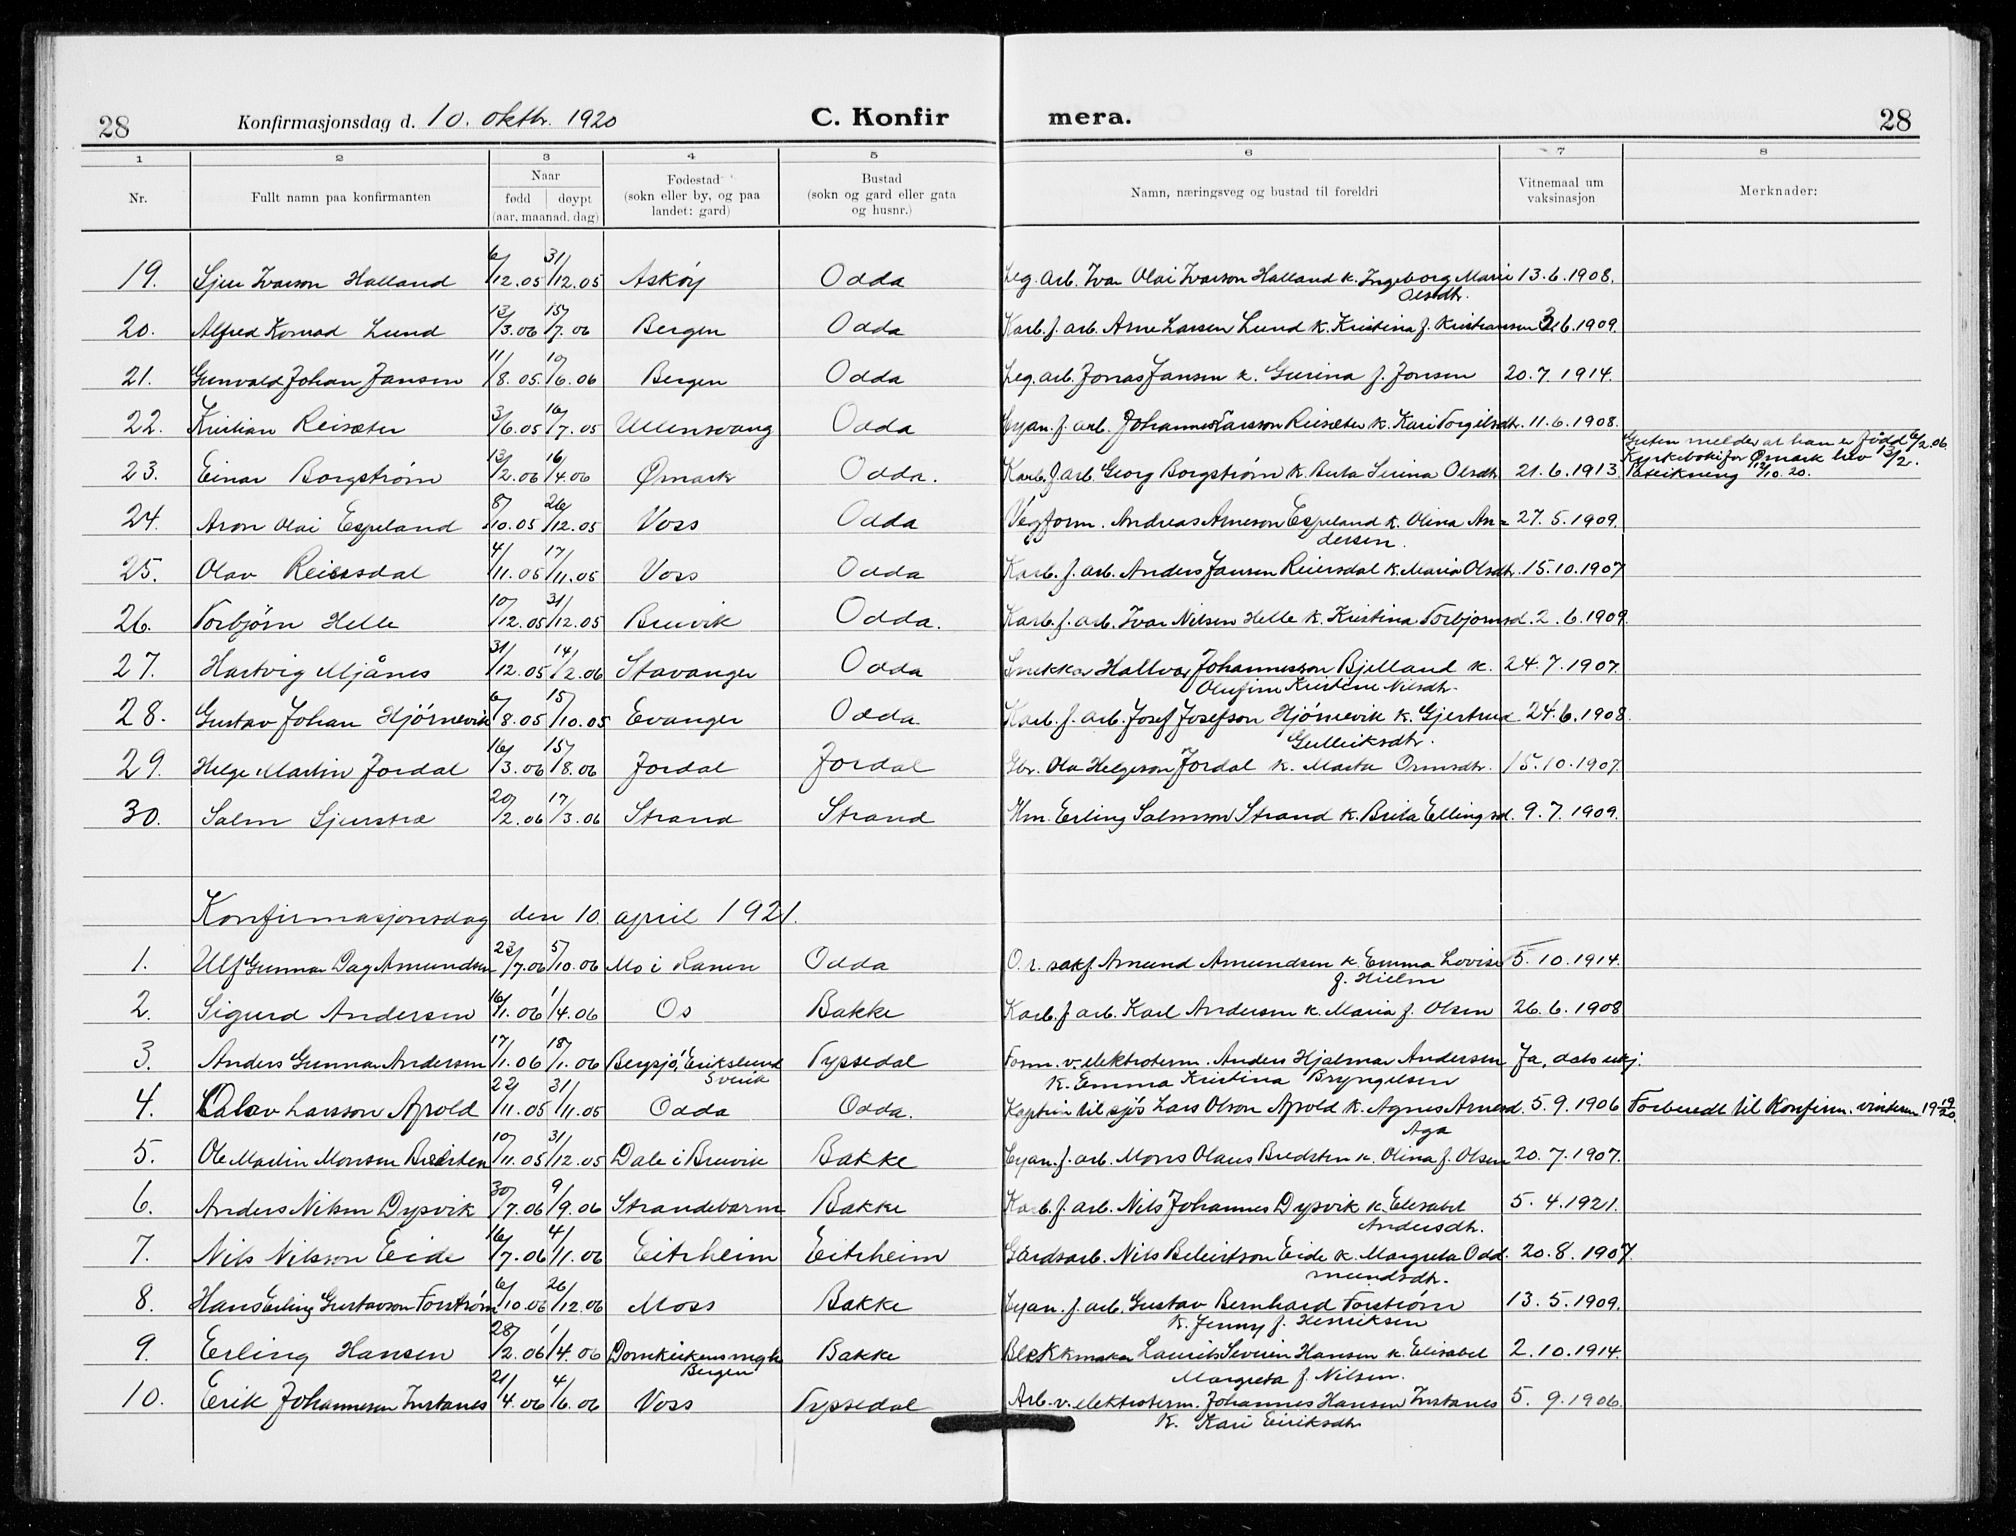 28 Konfirmasjonsdag d. 10. oktbr. 1920 C. Konfir mera. 28
1 2 3 4 5 6 7 8
Nr. Fullt namn paa konfirmanten Naar født døypt (aar, maanad, dag) Fødestad (sokn eller by, og paa landet: gard) Bustad (sokn og gard eller gata og husnr.) Namn, næringsveg og bustad til foreldri Vitnemaal um vaksinasjon Merknader:
19. Sjur Ivarson Halland 6/12.05 31/12.05 Askøy Odda Leg. arb. Ivar Olai Ivarson Halland k. Ingeborg Marie 13.6.1908.
Olsdtr.
20. Alfred Konrad Lund 13/3.06 15/7.06 Bergen Odda Karb. f. arb. Arne Larsen Lund k. Kristina f. Kristiansen 3.6.1909.
21. Gunvald Johan Jansen 11/8.05. 10/6.06 Bergen Odda Leg. arb. Jonas Jansen k. Gurina f. Jonsen 20.7.1914.
22. Kristian Reisæter 3/6.05 16/7.05 Ullensvang Odda Cyan. f. arb. Johannes Larsson Reisæter k. Kari Torgilsdtr. 11.6.1908.
Guten melder at han er fødd 6/2.06
23. Einar Borgstrøm 13/2.06 16/4.06 Ømark Odda. Karb. f. arb. Georg Borgstrøm k. Berta Serina Olsdtr 21.6.1913. Kyrkeboki for Ømark hev 13/2.
12/10.20.
24. Aron Olai Espeland 8/10.05 26/12.05 Voss Odda Vegform. Andreas Arneson Espeland k. Olina An= 27.5.1909.
dersen.
25. Olav Reiersdal 4/11.05 17/11.05 Voss Odda Karb. f. arb. Anders Jansen Reiersdal k. Maria Olsdtr. 15.10.1907
26. Torbjørn Helle 10/12.05 31/12.05 Bruvik Odda. Karb. f. arb. Ivar Nilsen Helle k. Kristina Torbjørnsd. 2.6.1909.
27. Hartvig Mjånes 31/12.05 14/2.06 Stavanger Odda Snekkar Hallvar Johannesson Bjelland k. 24.7.1907.
Olufine Kristine Nilsdtr.
28. Gustav Johan Hjörnevik 6/8.05 15/10.05 Evanger Odda. Karb. f. arb. Josef Josefson Hjørnevik k. Gjertrud 24.6.1908.
Gulleiksdtr.
29. Helge Martin Jordal 16/3.06 15/8.06 Jordal Jordal Gbr. Ola Helgeson Jordal k. Marta Ormsdtr. 15.10.1907.
30. Salm Sjurstræ 20/2.06 17/3.06 Strand Strand Hm. Erling Salmson Strand k. Brita Ellingsd. 9.7.1909.
Konfirmasjonsdag den 10. april 1921.
1. Ulf Gunnar Dag Amundsen 23/7.06 5/10.06 Mo i Ranen Odda O. r. sakf. Amund Amundsen k. Emma Lovise 5.10.1914.
f. Hielm
2. Sigurd Andersen 16/1.06 1/4.06 Os Bakke Karb. f. arb. Karl Andersen k. Maria f. Olsen 26.6.1908
3. Anders Gunnar Andersen 17/1.06 18/1.06 Bergsjö, Erikslund Tyssedal Form. v. elektroterm. Anders Hjalmar Andersen Ja, dato ukj.
Sverik k. Emma Kristina Bryngelsen
4. Olav Larsson Apold 22/11.05 31/11.05 Odda Odda. Kaptein til sjøs Lars Olson Apold k. Agnes Arnesd. 5.9.1906 Forberedt til Konfirm. vinteren 1919/20.
Aga
5. Ole Martin Monsen Bredsten 10/11.05 31/12.05 Dale i Bruvik Bakke Cyan. f. arb. Mons Olaus Bredsten k. Olina f. Olsen 20.7.1907.
6. Anders Nilsen Dysvik 30/7.06 9/9.06 Strandebarm Bakke Karb. f. arb. Nils Johannes Dysvik k. Elisabet 5.4.1921.
Andersdtr.
7. Nils Nilsson Eide 16/7.06 4/11.06 Eitrheim Eitrheim Gardsarb. Nils Eide k. Margreta Odd 20.8.1907
mundsdtr.
8. Hans Erling Gustavson Forstrøm 6/10.06 26/12.06 Moss Bakke Cyan. f. arb. Gustav Bernhard Forstrøm 13.5.1909.
k. Jenny f. Henriksen
9. Erling Hansen 28/2.06 1/4.06 Domkirkens mgh Bakke Blekkmakar Laurits Severin Hansen k. Elisabet 2.10.1914.
Bergen Margreta f. Nilsen.
10. Erik Johanneson Instanes 21/4.06 4/6.06 Voss Tyssedal Arb. v. elektroterm. Johannes Hansen Instanes 5.9.1906.
k. Kari Eiriksdtr